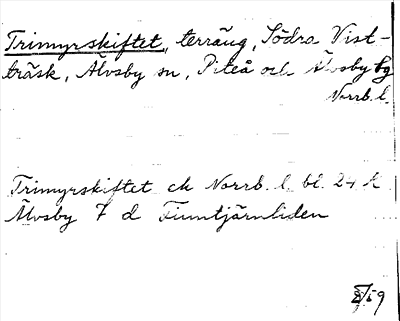 Trimyrskiftet, terräng, Södra Vist-
träsk, Älvsby sn, Piteå och Älvsby tg
Norrb. l.
Trimyrskiftet ek Norrb. l. bl. 24 k
Älvsby 7 d Finntjärnliden
/59